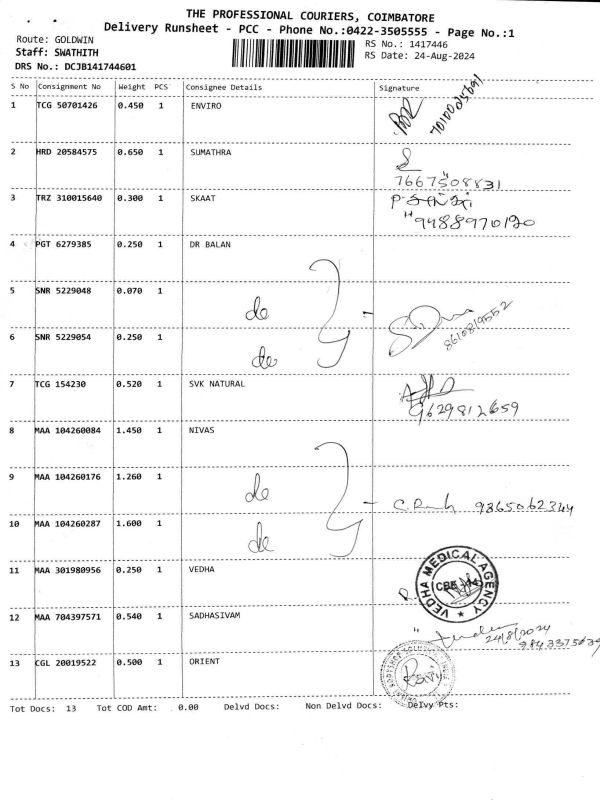 THE PROFESSIONAL COURIERS, COIMBATORE
Delivery Runsheet - PCC - Phone No.:0422-3505555 - Page No.:1
Route: GOLDWIN
RS No.: 1417446
Staff: SWATHITH
RS Date: 24-Aug-2024
DRS No.: DCJB141744601
S No Consignment No Weight PCS Consignee Details Signature
1 TCG 50701426 0.450 1 ENVIRO
2 HRD 20584575 0.650 1 SUMATHRA
7667508831
3 TRZ 310015640 0.300 1 SKAAT
9488970120
4 PGT 6279385 0.250 1 DR BALAN
5 SNR 5229048 0.070 1 de
8610819552
6 SNR 5229054 0.250 1 de
7 TCG 154230 0.520 1 SVK NATURAL
9629812659
8 MAA 104260084 1.450 1 NIVAS
9 MAA 104260176 1.260 1 de
9865062344
10 MAA 104260287 1.600 1 de
11 MAA 301980956 0.250 1 VEDHA
R.
VEDHA MEDICAL AGENCY
12 MAA 704397571 0.540 1 SADHASIVAM
24/8/2024
13 CGL 20019522 0.500 1 ORIENT
Tot Docs: 13 Tot COD Amt: 0.00 Delvd Docs: Non Delvd Docs: Delvy Pts: